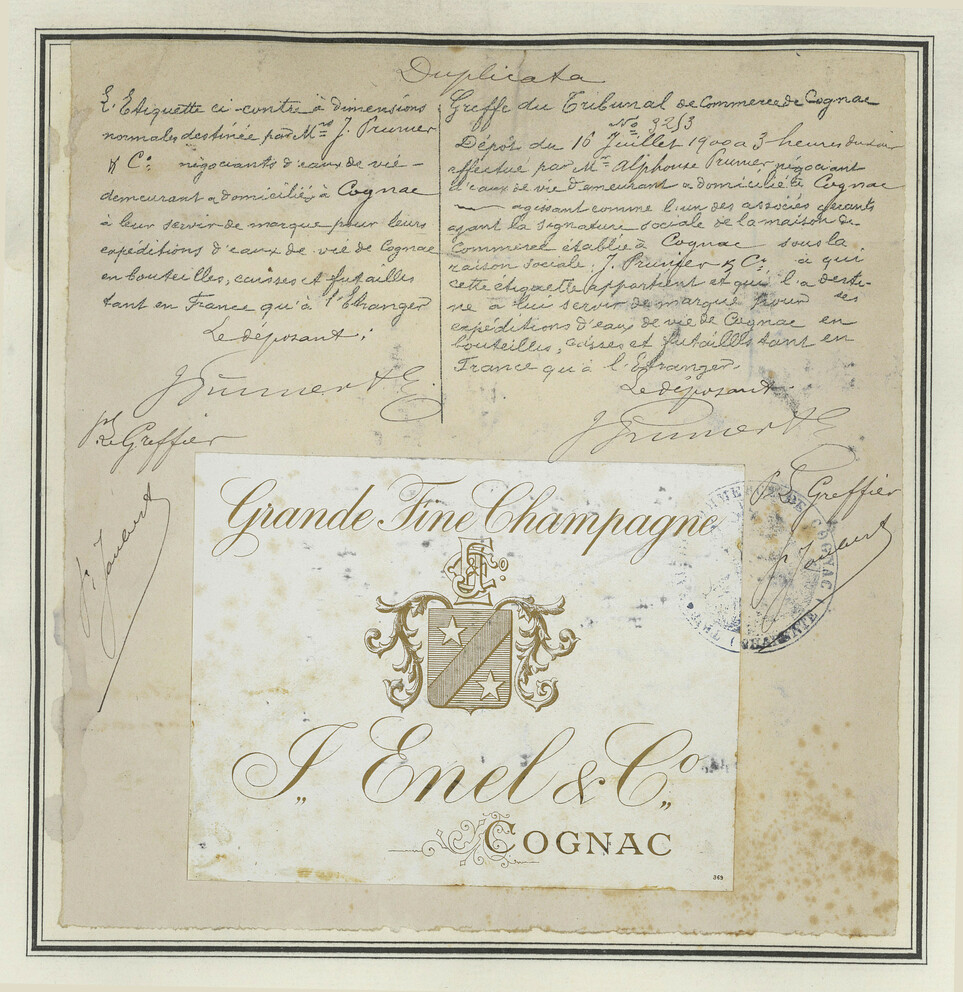 Duplicata
L'Etiquette ci-contre à dimensions
normales destinée par Mrs J. Prunier
& Co négociants d'eaux de vie –
demeurant & domiciliés à Cognac
à leur servir de marque pour leurs
expéditions d'eaux de vie de Cognac
en bouteilles, caisses et futailles
tant en France qu'à l'Etranger
Le déposant:
J Prunier & Co
pr Le Greffier
Greffe du Tribunal de Commerce de Cognac
No 3253
Dépôt du 16 Juillet 1900 a 3 heures du soir
effectué par Mr Alphonse Prunier, négociant
d'eaux de vie demeurant & domicilié à Cognac
— agissant comme l'un des associés gérants
ayant la signature sociale de la maison de
Commerce établie à Cognac sous la
raison sociale: J. Prunier & Co, à qui
cette étiquette appartient et qui l'a desti-
né à lui servir de marque pour ses
expéditions d'eaux de vie de Cognac en
bouteilles, caisses et futailles tant en
France qu'à l'Étranger.
Le déposant.
J Prunier & Co
pr Le Greffier
Grande Fine Champagne
J. Enel & Co.
COGNAC
369
COMMERCE DE COGNAC